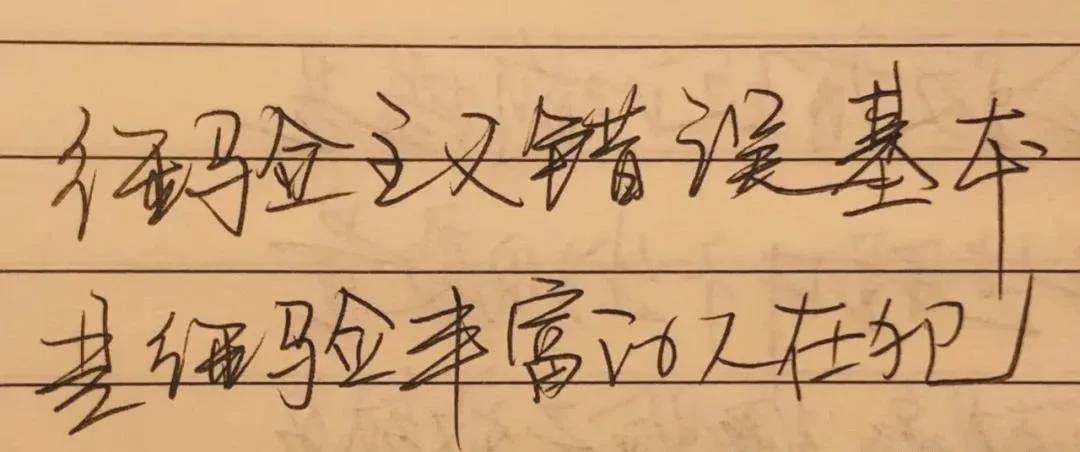 经验主义错误基本
是经验丰富的人在犯